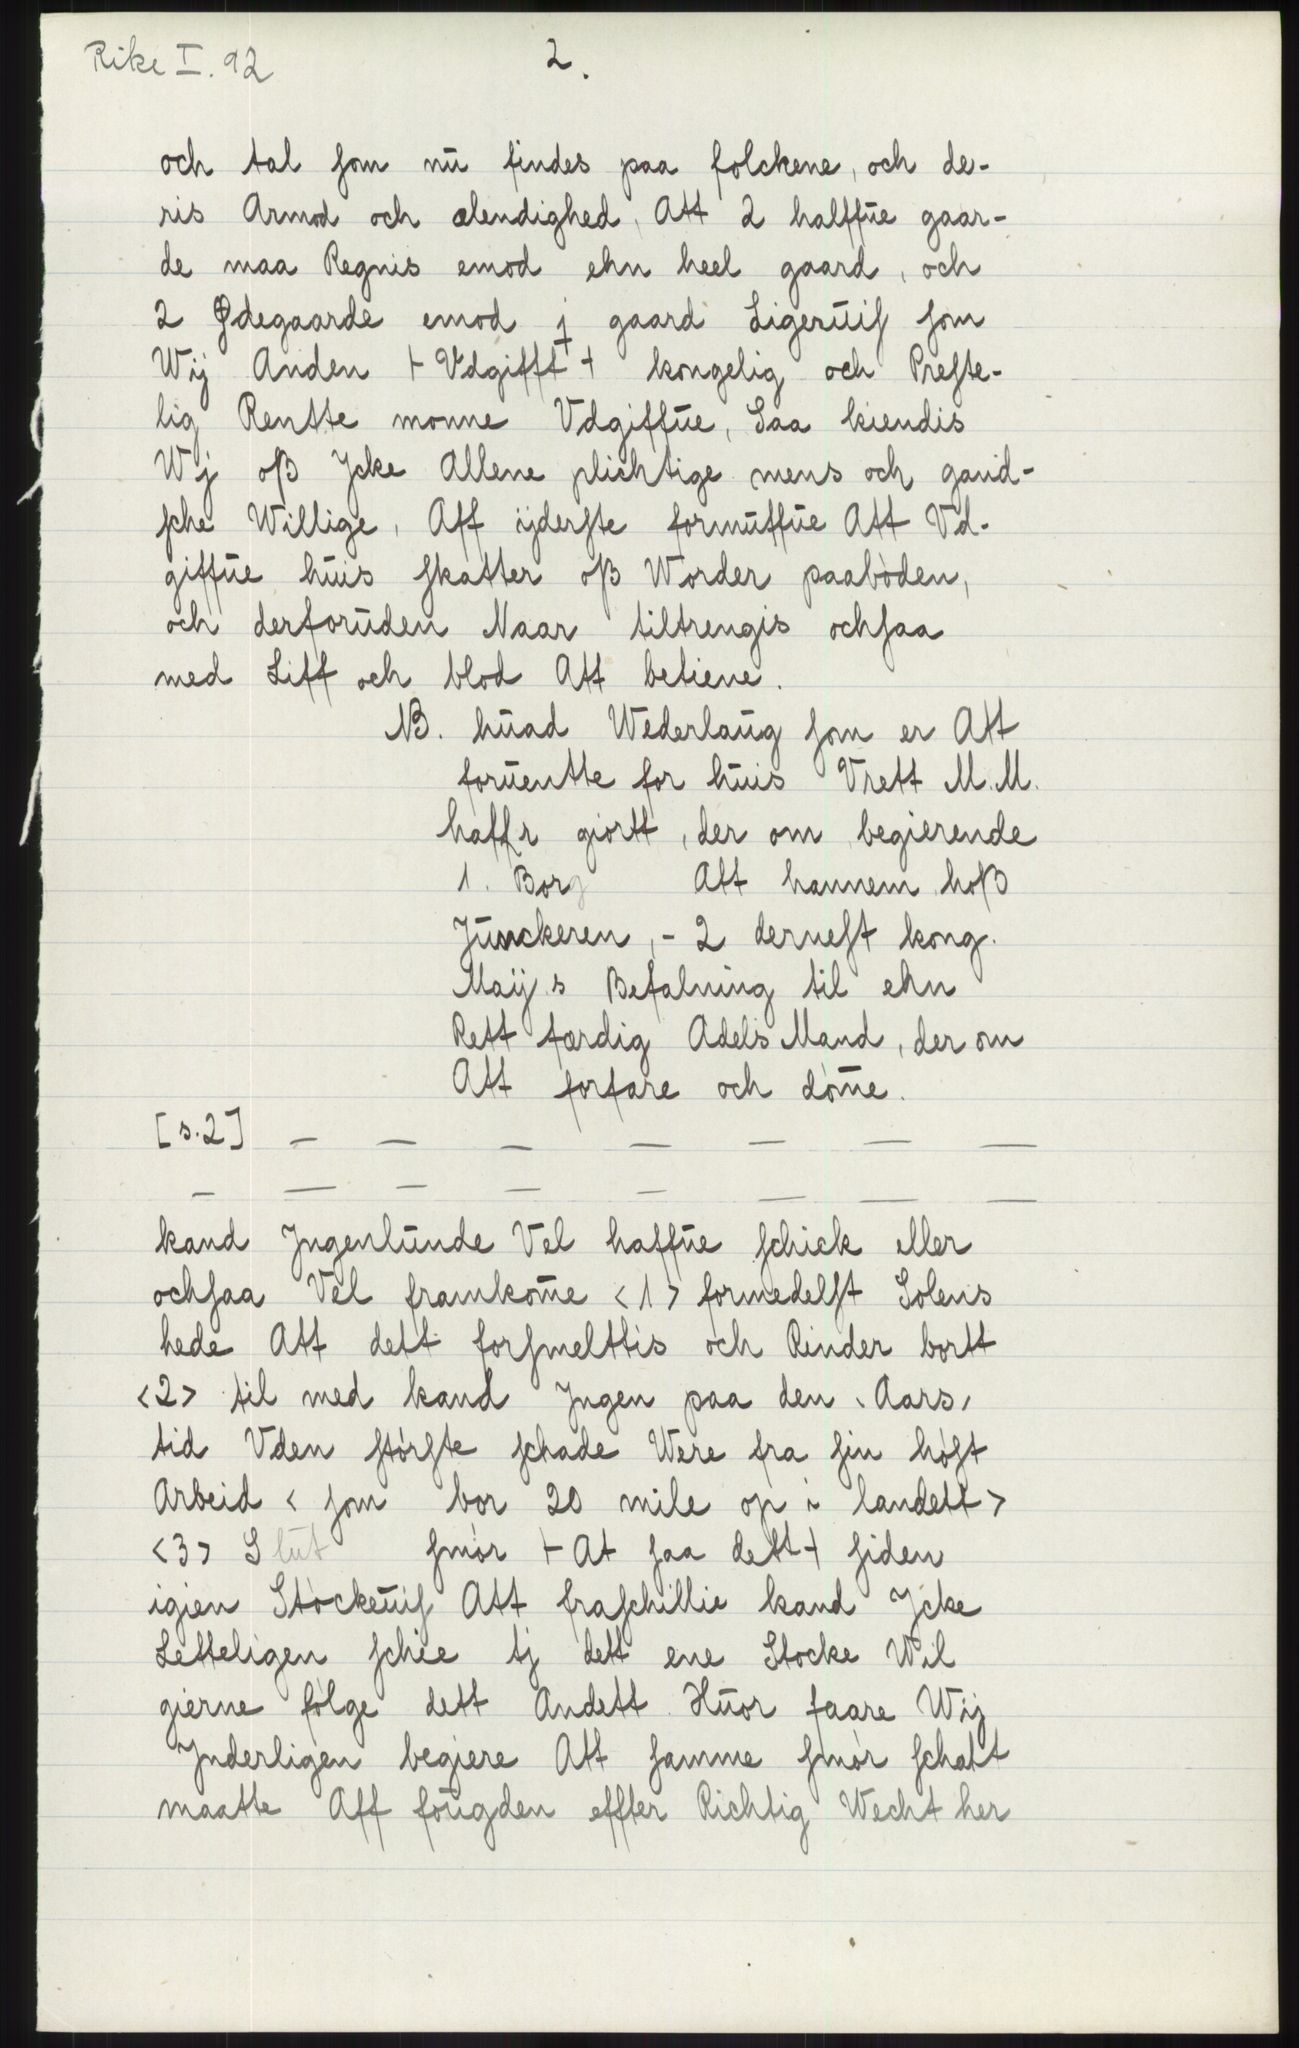 Rike I. 92
2.
och tal som nū findes paa folckene, och de-
ris Armod och elendighed, Att 2 halffūe gaar-
de maa Regnis emod ehn heel gaard, och
2 Ødegaarde emod j gaard Ligerūis som
Wij Anden ⊢ Vdgifft ⊣ kongelig och Preste-
lig Rentte monne Vdgiffūe, Saa kiendis
Wj oß Jcke Allene plichtige mens och gand-
sche Willige, Aff ijderste formūffūe Att Vd-
giffūe hūis skatter oß Worder paaboden,
och derforūden Naar tiltrengis ochsaa
med Liff och blod Att betiene.
NB. hūad Wederlaūg som er Att
forūentte for hūis Vrett M.M.
haffr giortt, der om begierende
1. Borg Att hannem hoß
Jūnckeren, - 2 dernest kong.
Maijs Befalning til ehn
Rett færdig Adels Mand, der om
Att forfare och döm̄e.
[s.2] — — — — — — —
— — — — — — — —
kand Jngenlūnde Vel haffūe schick eller
ochsaa Vel framkom̄e <1> formedelst Solens
hede Att dett forsmelttis och Rinder bortt
<2> til med kand Jngen paa den Aars,
tid Vden störste schade Were fra sin höst
Arbeid < som bor 20 mile op i landett >
<3> Slūt smör ⊢ At saa dett ⊣ siden
igien Stöckeūis Att fraschillie kand Jcke
Letteligen schee tj dett ene Stocke Wil
gierne fölge dett Andett. Hūor faare Wij
Jnderligen begiere Att samme smör schatt
maatte Aff foūgden effter Richtig Wecht her